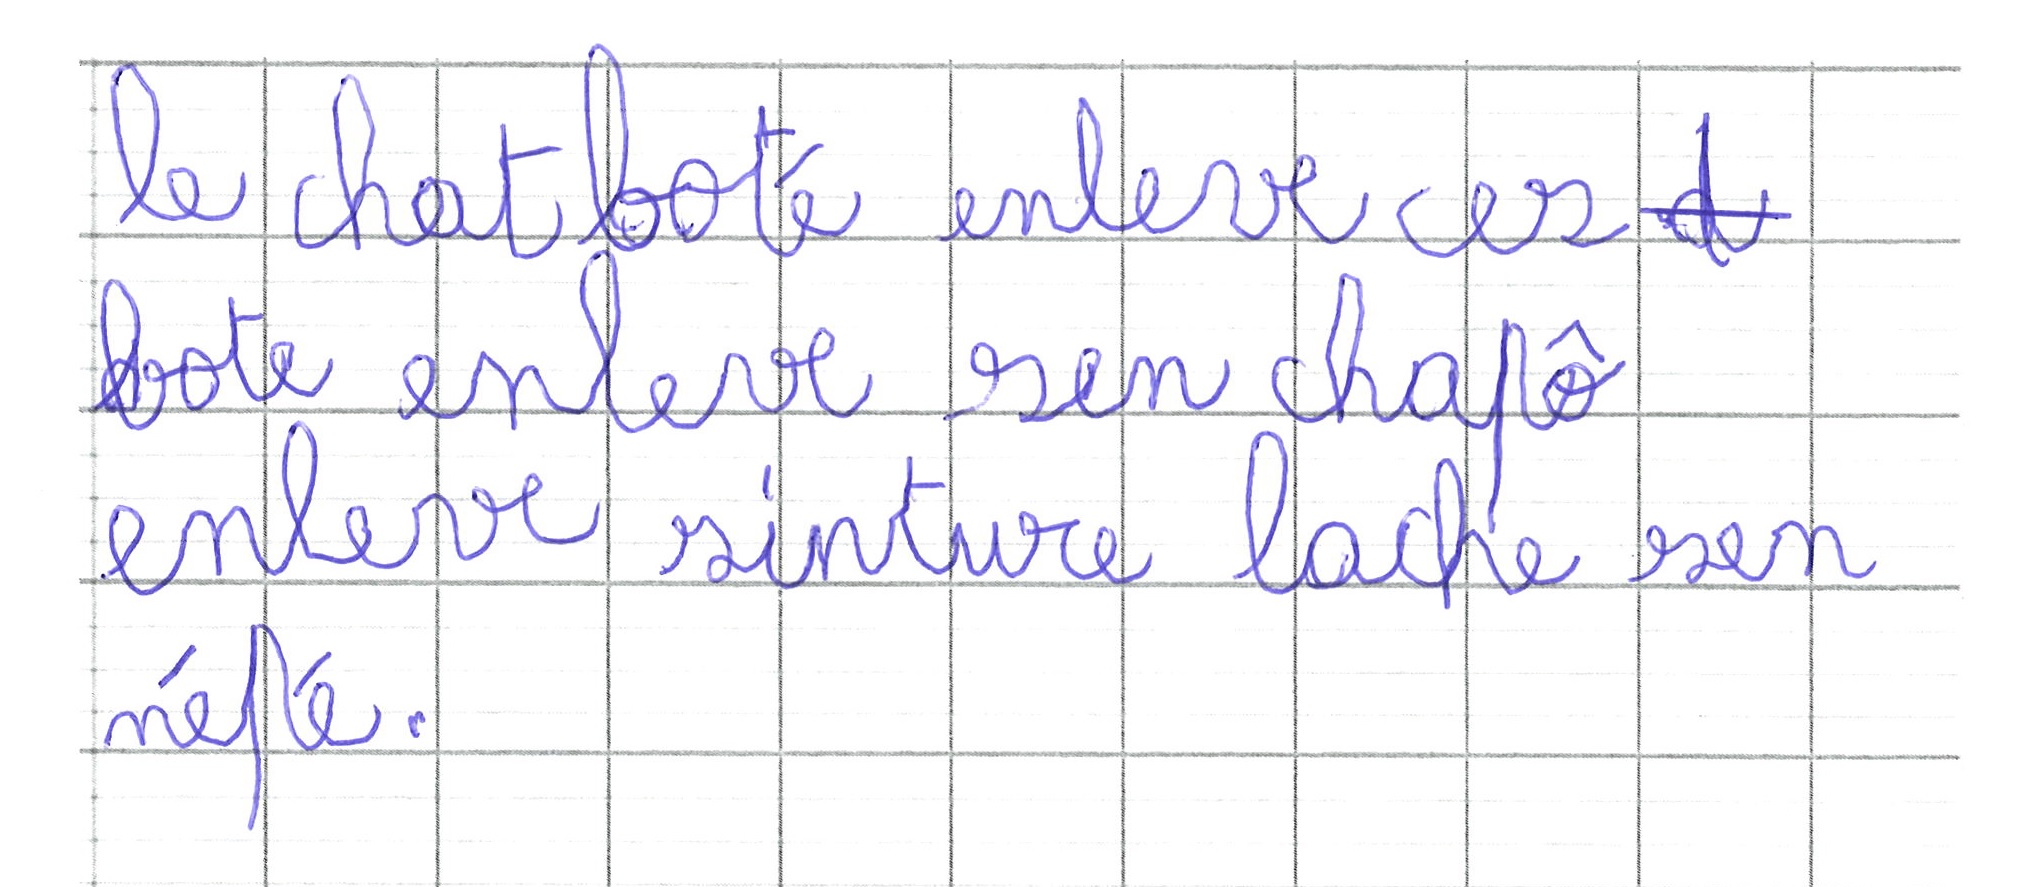 le chat boté enleve ces
bote enleve sen chapô
enleve sinture lache sen
népé.